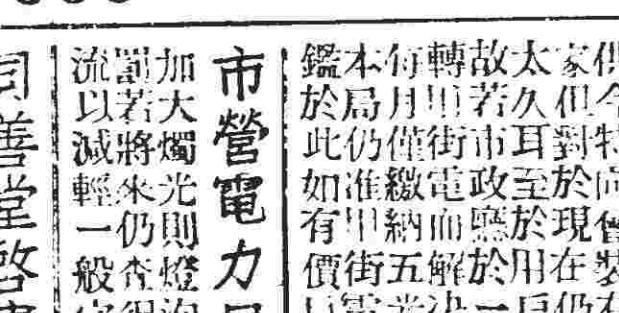 今特向會裝
家但對於現在仍
太久耳至於用戶
故若市政廳於一
轉用街電而解決
每月僅繳納五
本局仍准用街電
鑑於此如有價
市營電力
加大燭光則燈泡
罰若將來仍查
流以減輕一般
同善堂啓